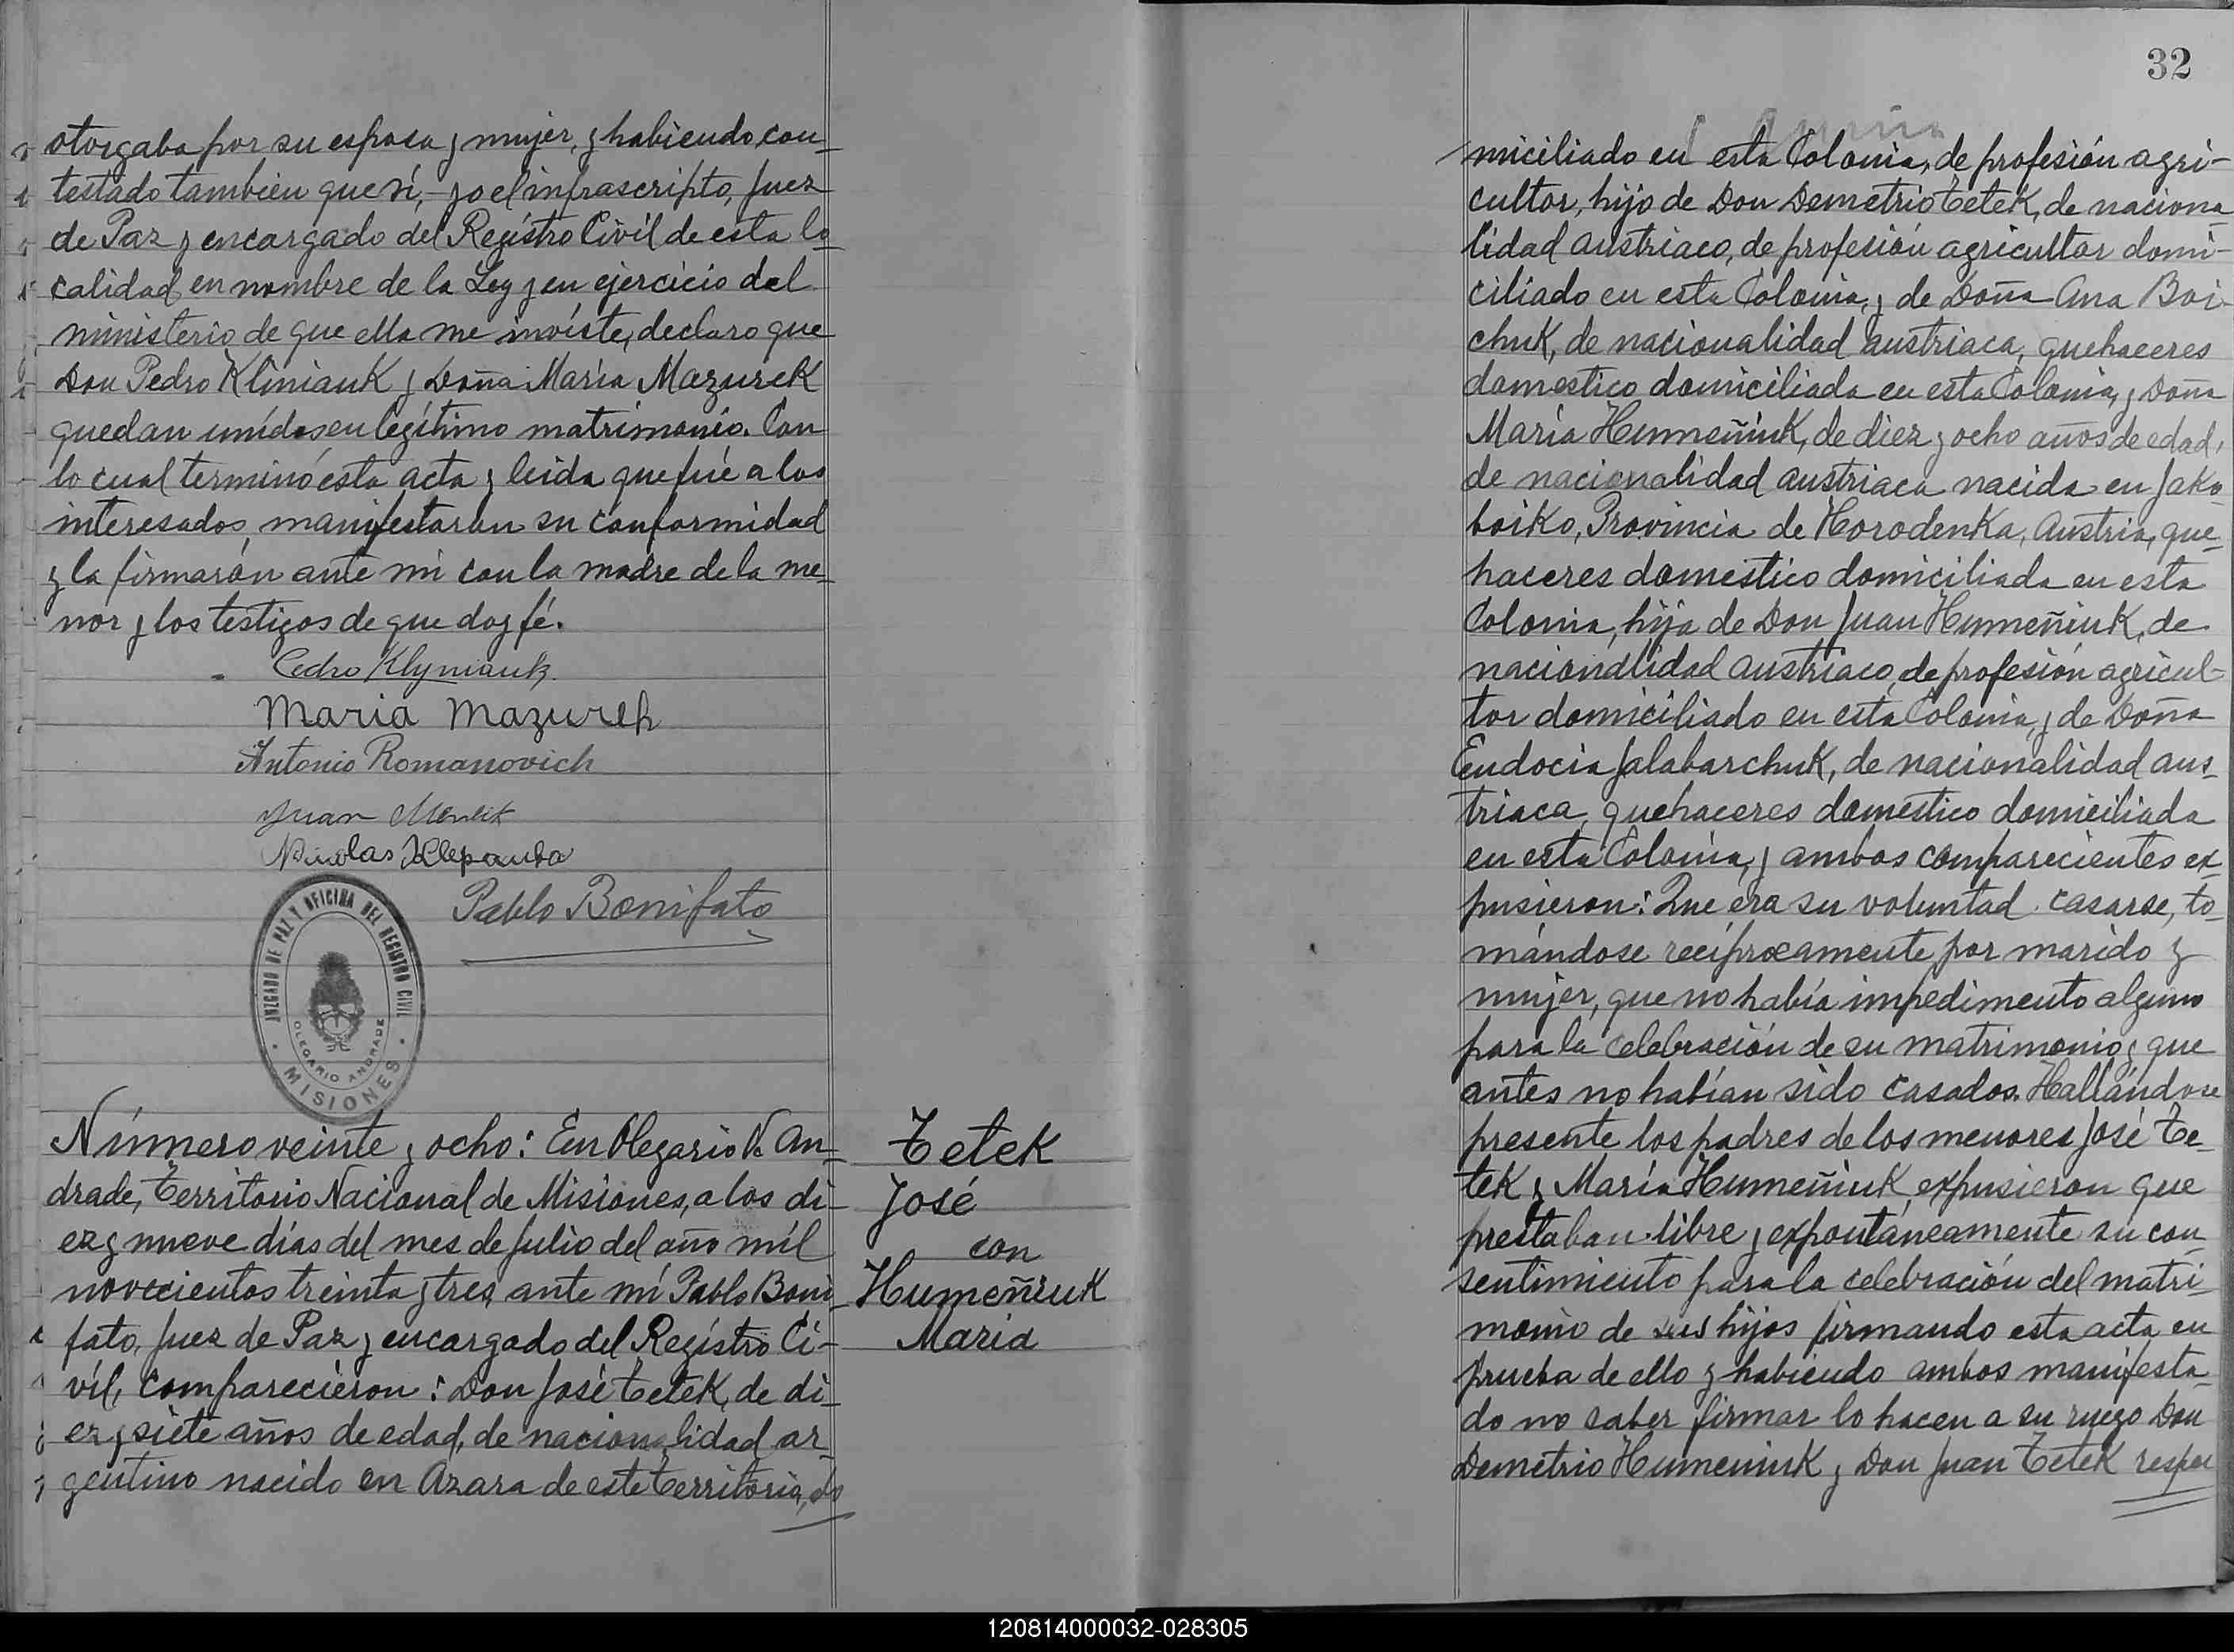 otorgaba por su esposa y mujer, y habiendo con-
testado tambien que sí,- yo el infrascripto, Juez
de Paz y encargado del Registro Civil de esta lo-
calidad en nombre de la Ley y en ejercicio del
ministerio de que ella me inviste, declaro que
Don Pedro Kliniauk y Doña María Mazurek
quedan unidos en legítimo matrimonio. Con
lo cual terminó esta acta y leida que fué a los
interesados, manifestaron su conformidad
y la firmarón ante mi con la madre de la me-
nor y los testigos de que doy fé.
Pedro Klyniauk.
Maria Mazurek
Antonio Romanovich
Juan
Nicolas
Pablo Bonifato
JUZGADO DE PAZ Y OFICINA DEL REGISTRO CIVIL
OLEGARIO ANDRADE
· MISIONES ·
Número veinte y ocho: En Olegario V. An-
drade, Territorio Nacional de Misiones, a los di-
ez y nueve días del mes de Julio del año mil
novecientos treinta y tres, ante mi Pablo Boni-
fato, Juez de Paz y encargado del Registro Ci-
vil, comparecieron: Don José Tetek, de di-
ez y siete años de edad, de nacionalidad ar-
gentino nacido en Azara de este territorio, do
Tetek
José
con
Humeñiuk
Maria
32
miciliado en esta Colonia, de profesión agri-
cultor, hijo de Don Demetrio Tetek, de naciona-
lidad austriaco, de profesión agricultor domi-
ciliado en esta Colonia, y de Doña Ana Boi-
chuk, de nacionalidad austriaca, quehaceres
domestico domiciliada en esta Colonia, y Doña
María Humeñiuk, de diez y ocho años de edad,
de nacionalidad austriaca nacida en Jako-
boiko, Provincia de Horodenka, Austria, que-
haceres domestico domiciliada en esta
Colonia, hija de Don Juan Humeñiuk, de
nacionalidad austriaco, de profesión agricul-
tor domiciliado en esta Colonia, y de Doña
Eudocia Jalabarchuk, de nacionalidad aus-
triaca, quehaceres domestico domiciliada
en esta Colonia, y ambos comparecientes ex-
pusieron: Que era su voluntad casarse, to-
mándose recíprocamente por marido y
mujer, que no había impedimento alguno
para la celebración de su matrimonio y que
antes no habían sido casados. Hallándose
presente los padres de los menores José Te-
tek y María Humeñiuk expusieron que
prestaban libre y expontáneamente su con-
sentimiento para la celebración del matri-
monio de sus hijos firmando esta acta en
prueba de ello y habiendo ambos manifesta-
do no saber firmar lo hacen a su ruego Don
Demetrio Humeniuk y Don Juan Tetek respec
120814000032-028305